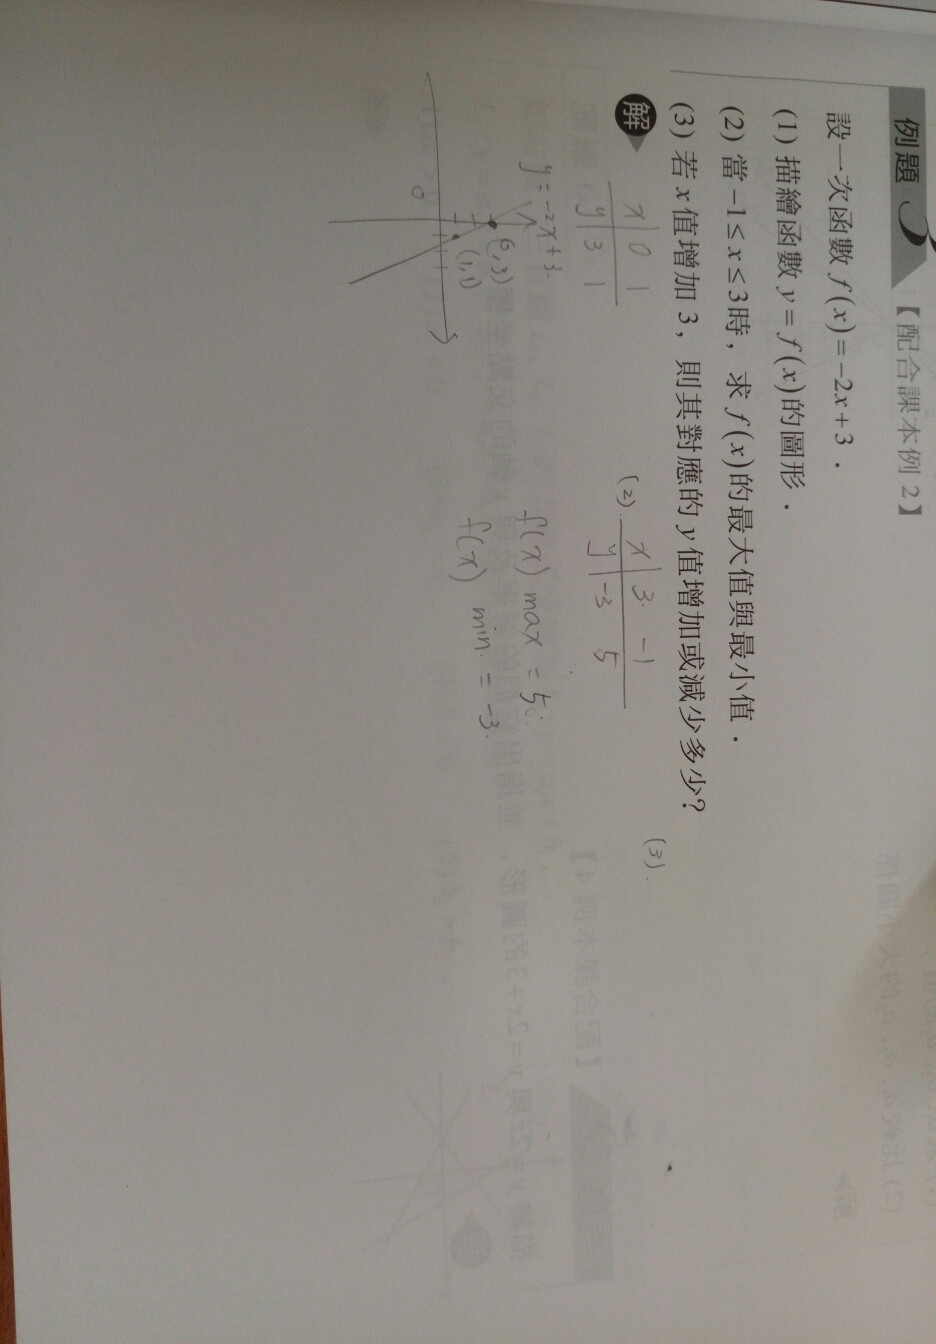 例題 3 【配合課本例 2】
設一次函數 f(x)=-2x+3．
(1) 描繪函數 y=f(x)的圖形．
(2) 當-1≤x≤3時，求f(x)的最大值與最小值．
(3) 若x值增加3，則其對應的y值增加或減少多少？
解
x 0 1
y 3 1
y=-2x+3.
(0,3)
(1,1)
0
(2).
x 3. -1
y -3 5
f(x) max = 5.
f(x) min. = -3.
(3).